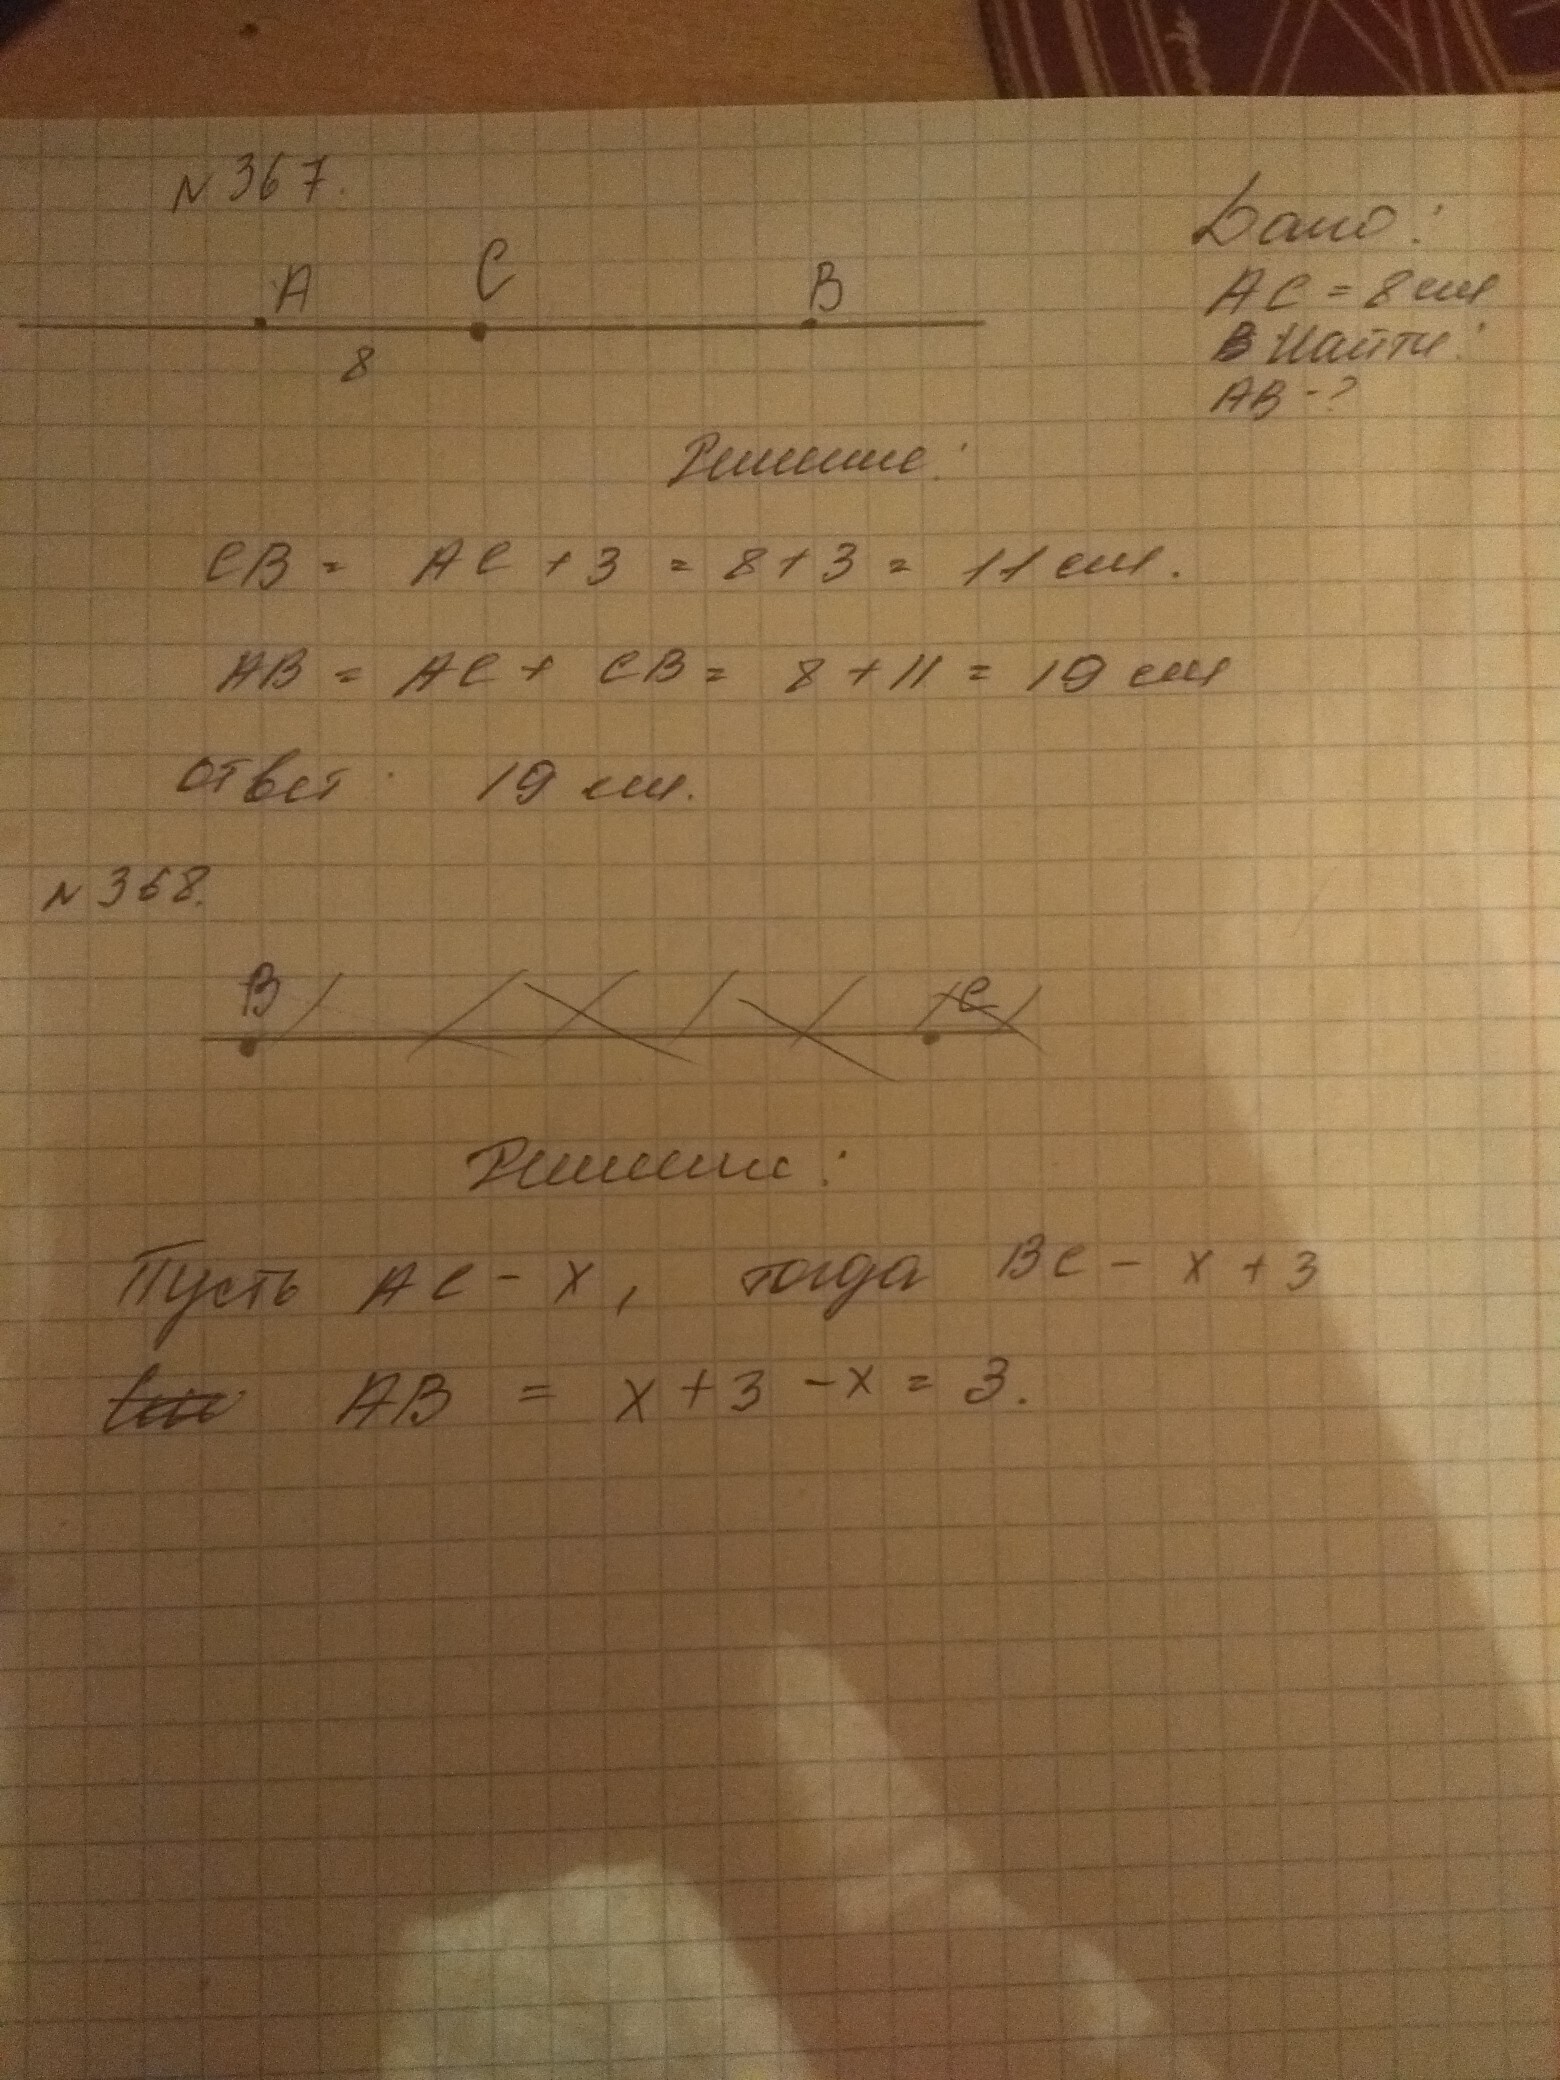 N 367.
A C B
8
Дано:
AC = 8 см
Найти:
AB - ?
Решение:
CB = AC + 3 = 8 + 3 = 11 см.
AB = AC + CB = 8 + 11 = 19 см
Ответ: 19 см.
N 368.
B C
Решение:
Пусть AC - x, тогда BC - x + 3
AB = x + 3 - x = 3.